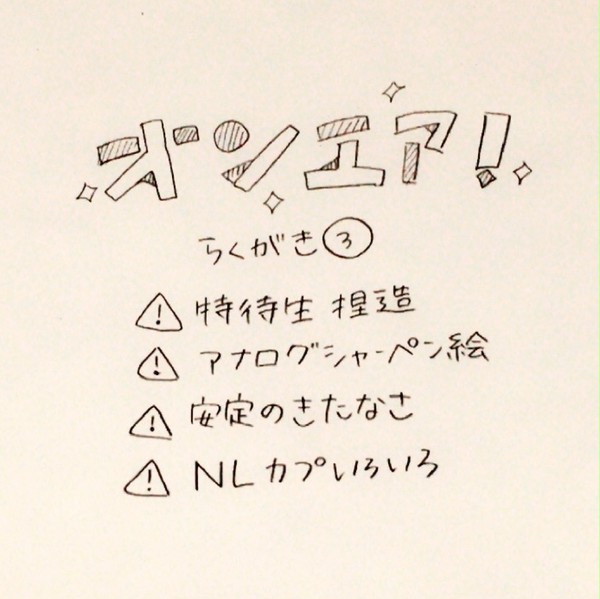 オンエア!
らくがき③
⚠特待生 捏造
⚠アナログシャーペン絵
⚠安定のきたなさ
⚠NLカプいろいろ